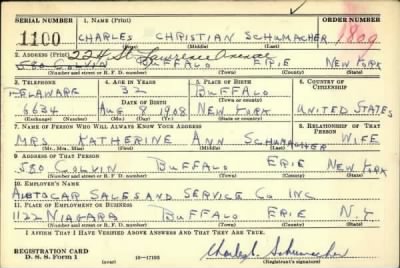 SERIAL NUMBER 1. NAME (Print) ORDER NUMBER
1100 CHARLES CHRISTIAN SCHUMACHER 1809
(First) (Middle) (Last)
2. ADDRESS (Print) 224 St Lawrence Avenue
580 COLVIN BUFFALO ERIE NEW YORK
(Number and street or R. F. D. number) (Town) (County) (State)
3. TELEPHONE 4. AGE IN YEARS 5. PLACE OF BIRTH 6. COUNTRY OF CITIZENSHIP
DELAWARE 32 BUFFALO
DATE OF BIRTH (Town or county)
6634 AUG 8 1908 NEW YORK UNITED STATES
(Exchange) (Number) (Mo.) (Day) (Yr.) (State or country)
7. NAME OF PERSON WHO WILL ALWAYS KNOW YOUR ADDRESS 8. RELATIONSHIP OF THAT PERSON
MRS KATHERINE ANN SCHUMACHER WIFE
(Mr., Mrs., Miss) (First) (Middle) (Last)
9. ADDRESS OF THAT PERSON
580 COLVIN BUFFALO ERIE NEW YORK
(Number and street or R. F. D. number) (Town) (County) (State)
10. EMPLOYER'S NAME
AUTOCAR SALES AND SERVICE CO INC
11. PLACE OF EMPLOYMENT OR BUSINESS
1122 NIAGARA BUFFALO ERIE N.Y
(Number and street or R. F. D. number) (Town) (County) (State)
I AFFIRM THAT I HAVE VERIFIED ABOVE ANSWERS AND THAT THEY ARE TRUE.
REGISTRATION CARD
D. S. S. Form 1 (over) 16—17105 Charles C. Schumacher
(Registrant's signature)